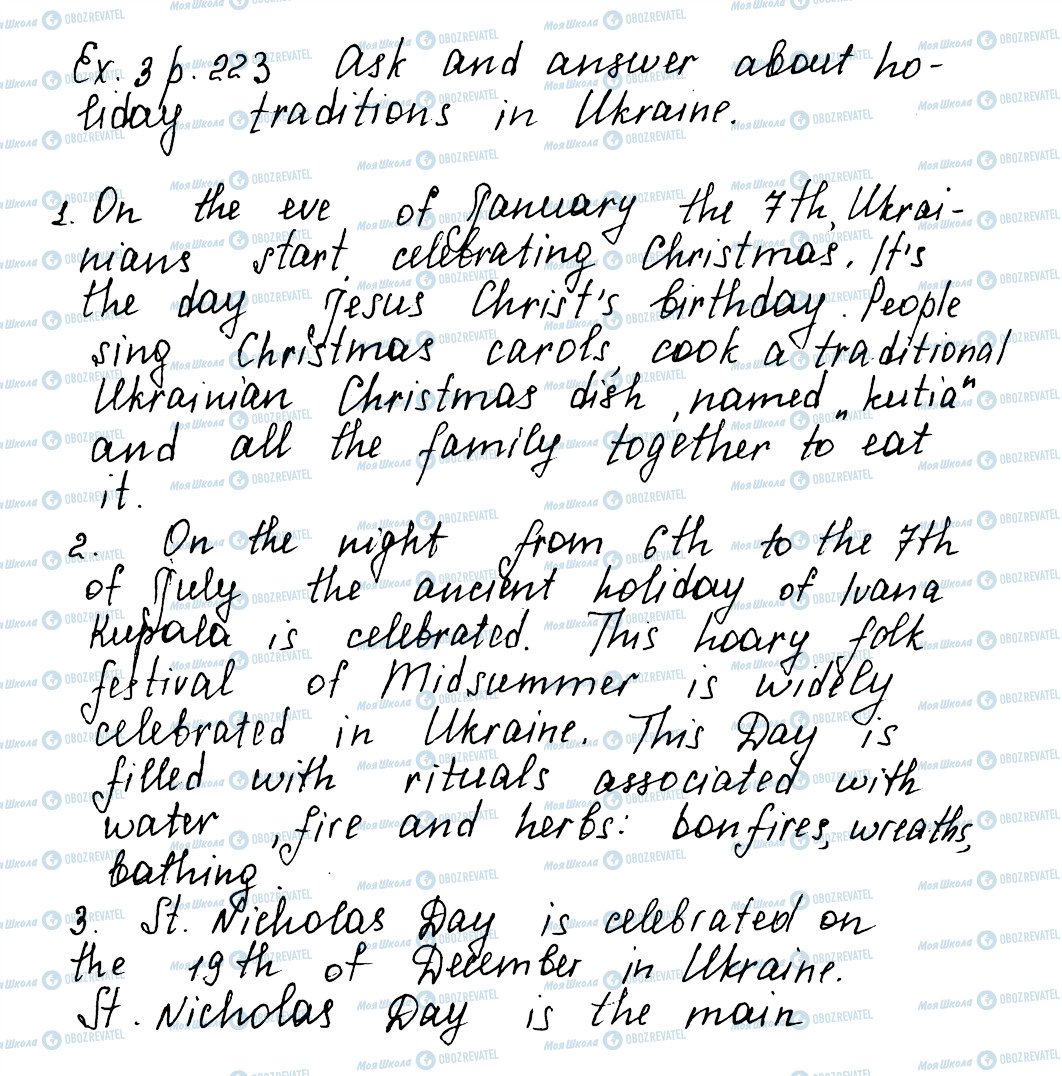 Ex. 3 p. 223 Ask and answer about ho-
liday traditions in Ukraine.
1. On the eve of January the 7th, Ukrai-
nians start celebrating Christmas. It's
the day Jesus Christ's birthday. People
sing Christmas carols, cook a traditional
Ukrainian Christmas dish, named „kutia"
and all the family together to eat
it.
2. On the night from 6th to the 7th
of July the ancient holiday of Ivana
Kupala is celebrated. This hoary folk
festival of Midsummer is widely
celebrated in Ukraine. This Day is
filled with rituals associated with
water, fire and herbs: bonfires, wreaths,
bathing.
3. St. Nicholas Day is celebrated on
the 19th of December in Ukraine.
St. Nicholas Day is the main